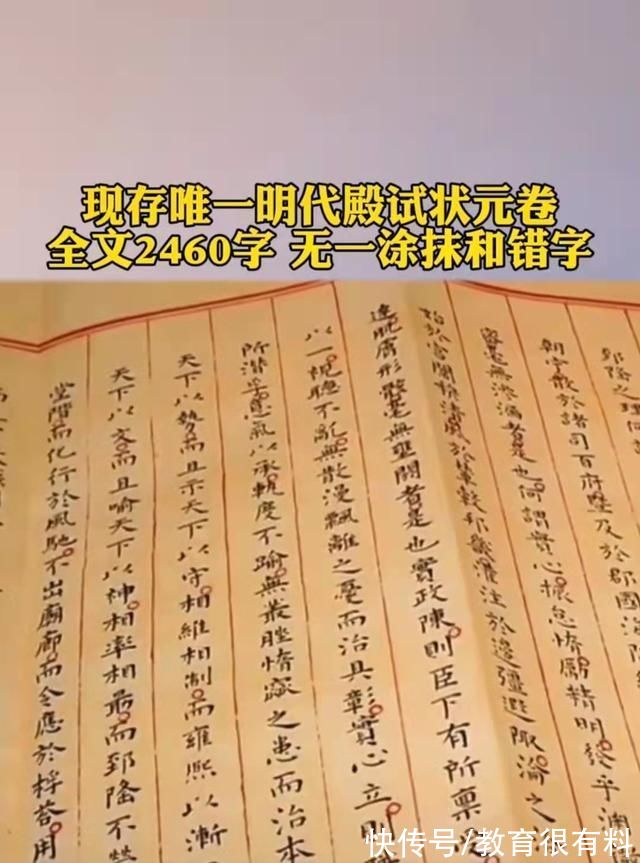 现存唯一明代殿试状元卷
全文2460字 无一涂抹和错字
郅隆之理何
朝宁散於諸司百府暨及於郡國海隅
容毫無滲漏者是也何謂實心振怠惰勵精明發乎淵
始於宮闈於輦轂邦畿灌注於邊疆遐陬淪之
達肌膚形骸毫無壅閼者是也實政陳則臣下有所禀
以一視聽不亂無散漫飄離之憂而治具彰實心立則
所潛孚意氣以承軌度不踰無叢脞惰窳之患而治本
天下以勢而且示天下以守相維相制而雍熙以漸
天下以文而且喻天下以神相率相最而郅隆不
堂階而化行於風馳不出廟廊而令應於桴答用
快传号/教育很有料